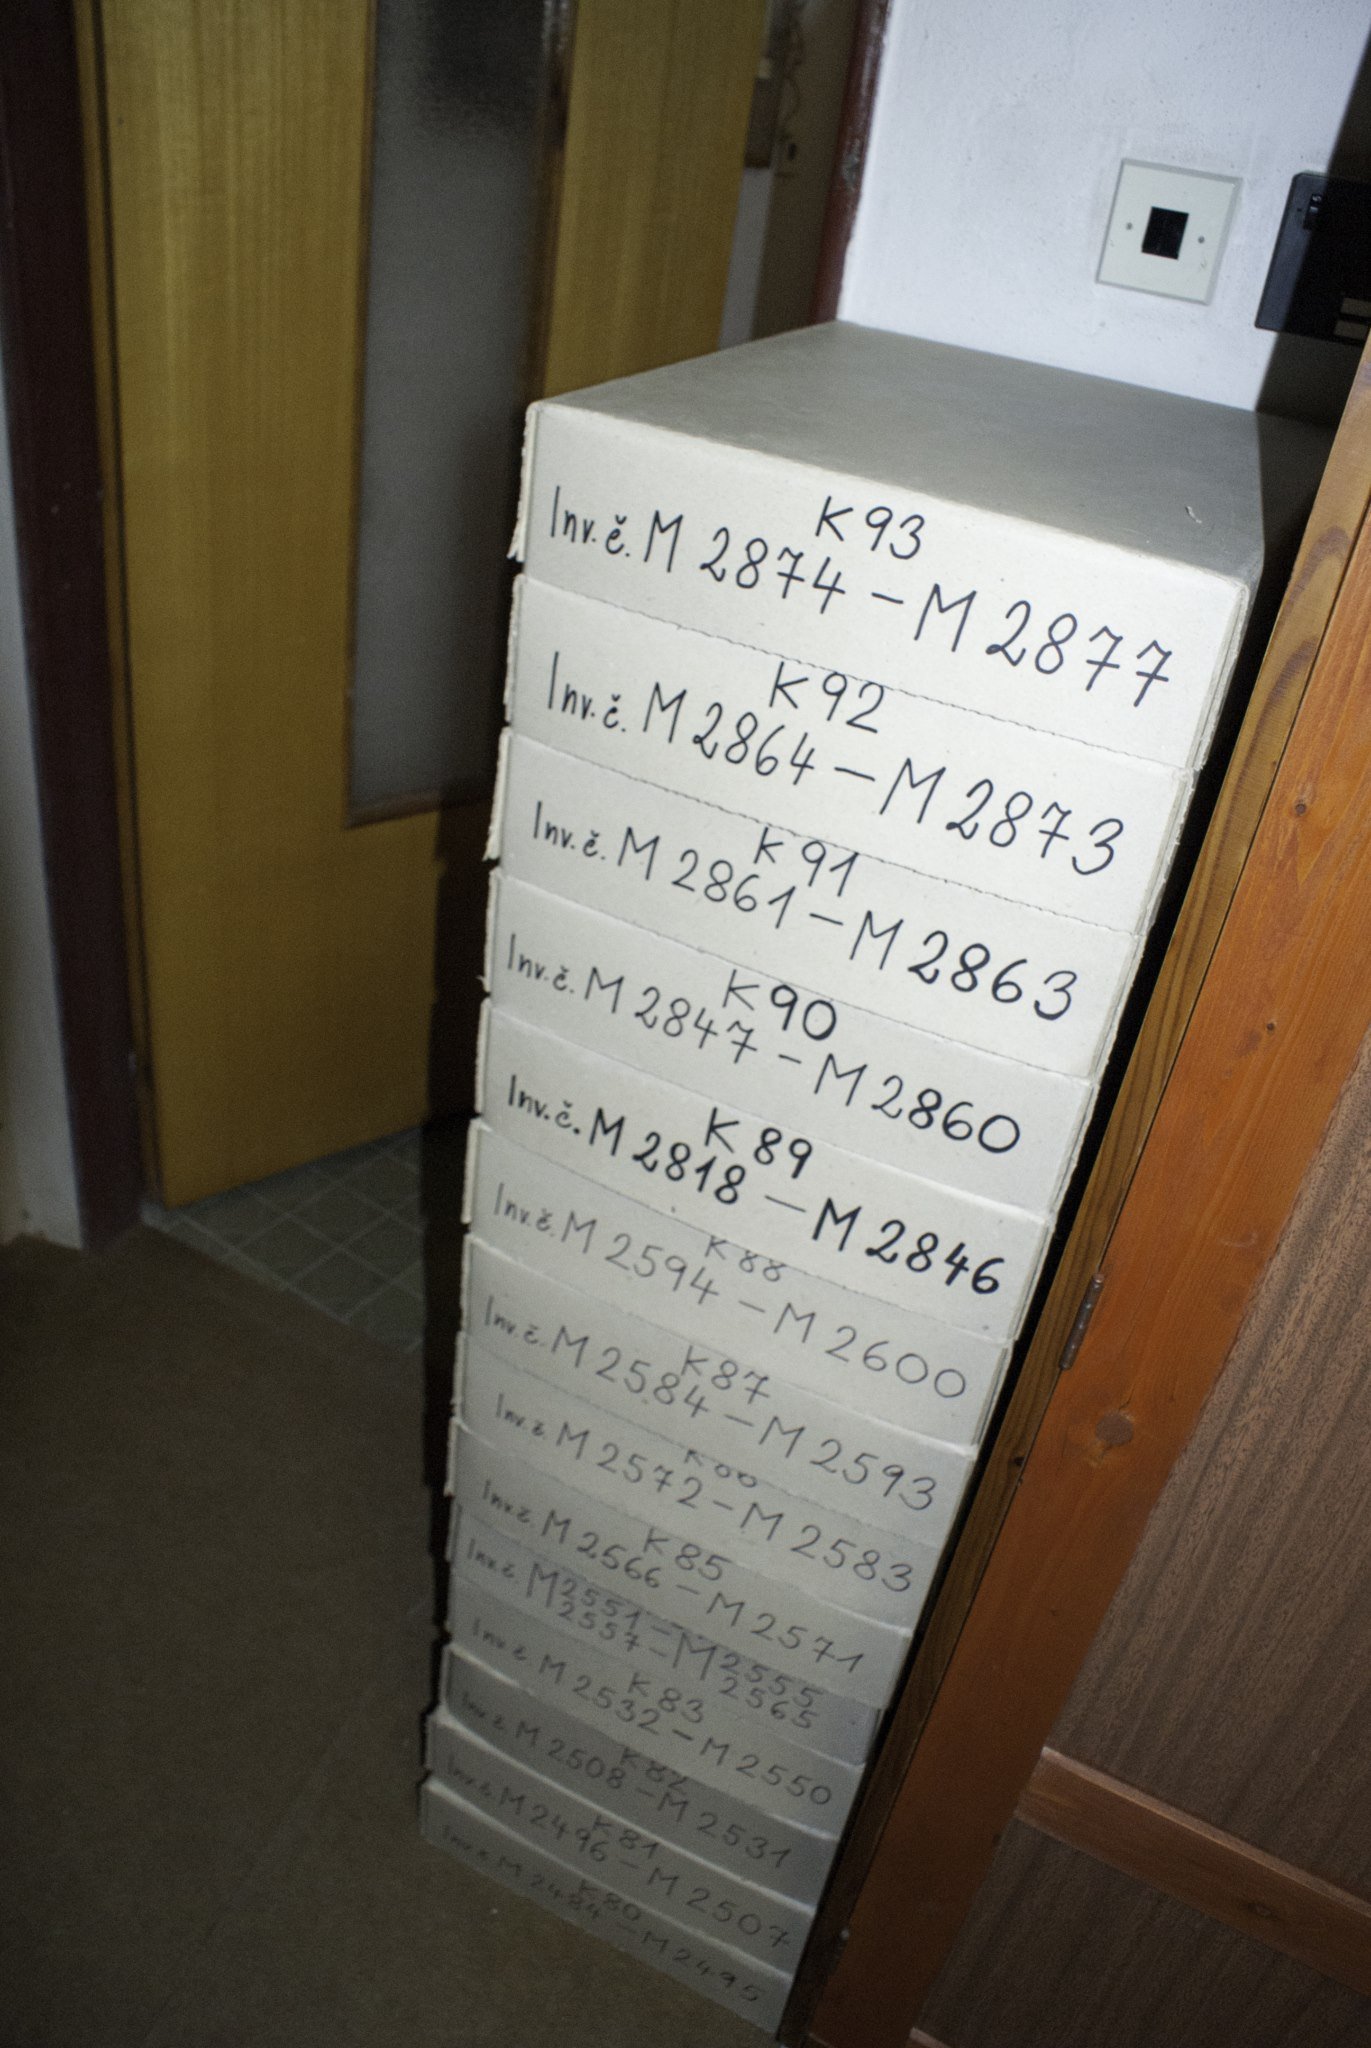 K93
Inv. č. M 2874 – M 2877
K92
Inv. č. M 2864 – M 2873
K 91
Inv. č. M 2861 – M 2863
K90
Inv. č. M 2847 – M 2860
K 89
Inv. č. M 2818 – M 2846
K 88
Inv. č. M 2594 – M 2600
K87
Inv. č. M 2584 – M 2593
Inv. č M 2572 – M 2583
K 85
Inv. č M 2566 – M 2571
Inv. č M 2551 – M 2555
2557 – 2565
K 83
Inv. č M 2532 – M 2550
K 82
Inv. č. M 2508 – M 2531
K 81
Inv. č. M 2496 – M 2507
K80
Inv. č. M 2484 – M 2495